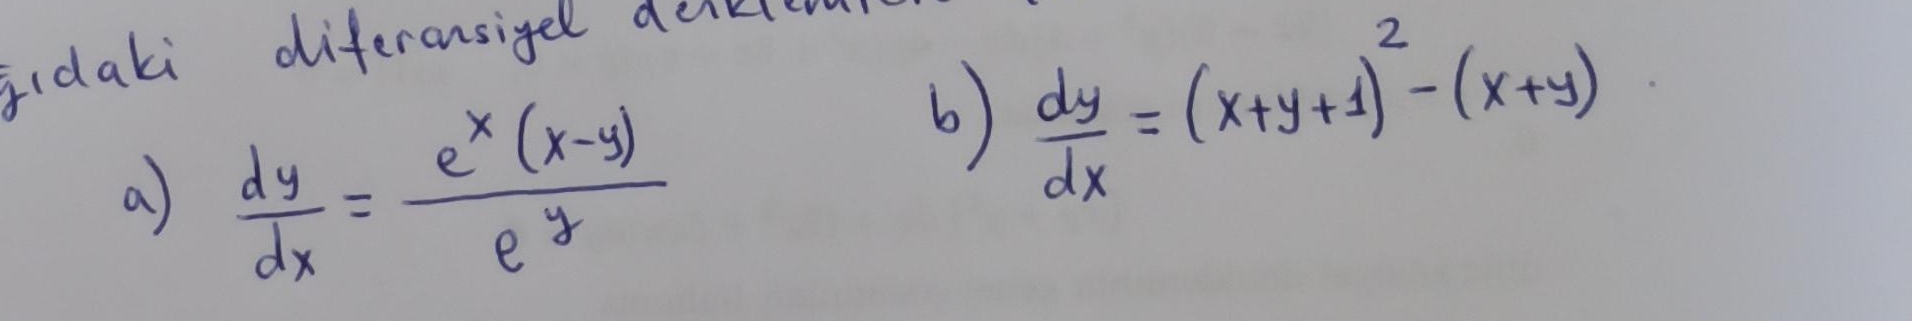 diferansiyel
a) dy/dx = e^x (x-y) / e^y
b) dy/dx = (x+y+1)^2 - (x+y)